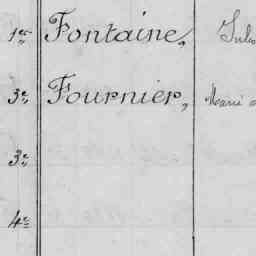 1er Fontaine, Jules
3e Fournier, Marie
3e
4e